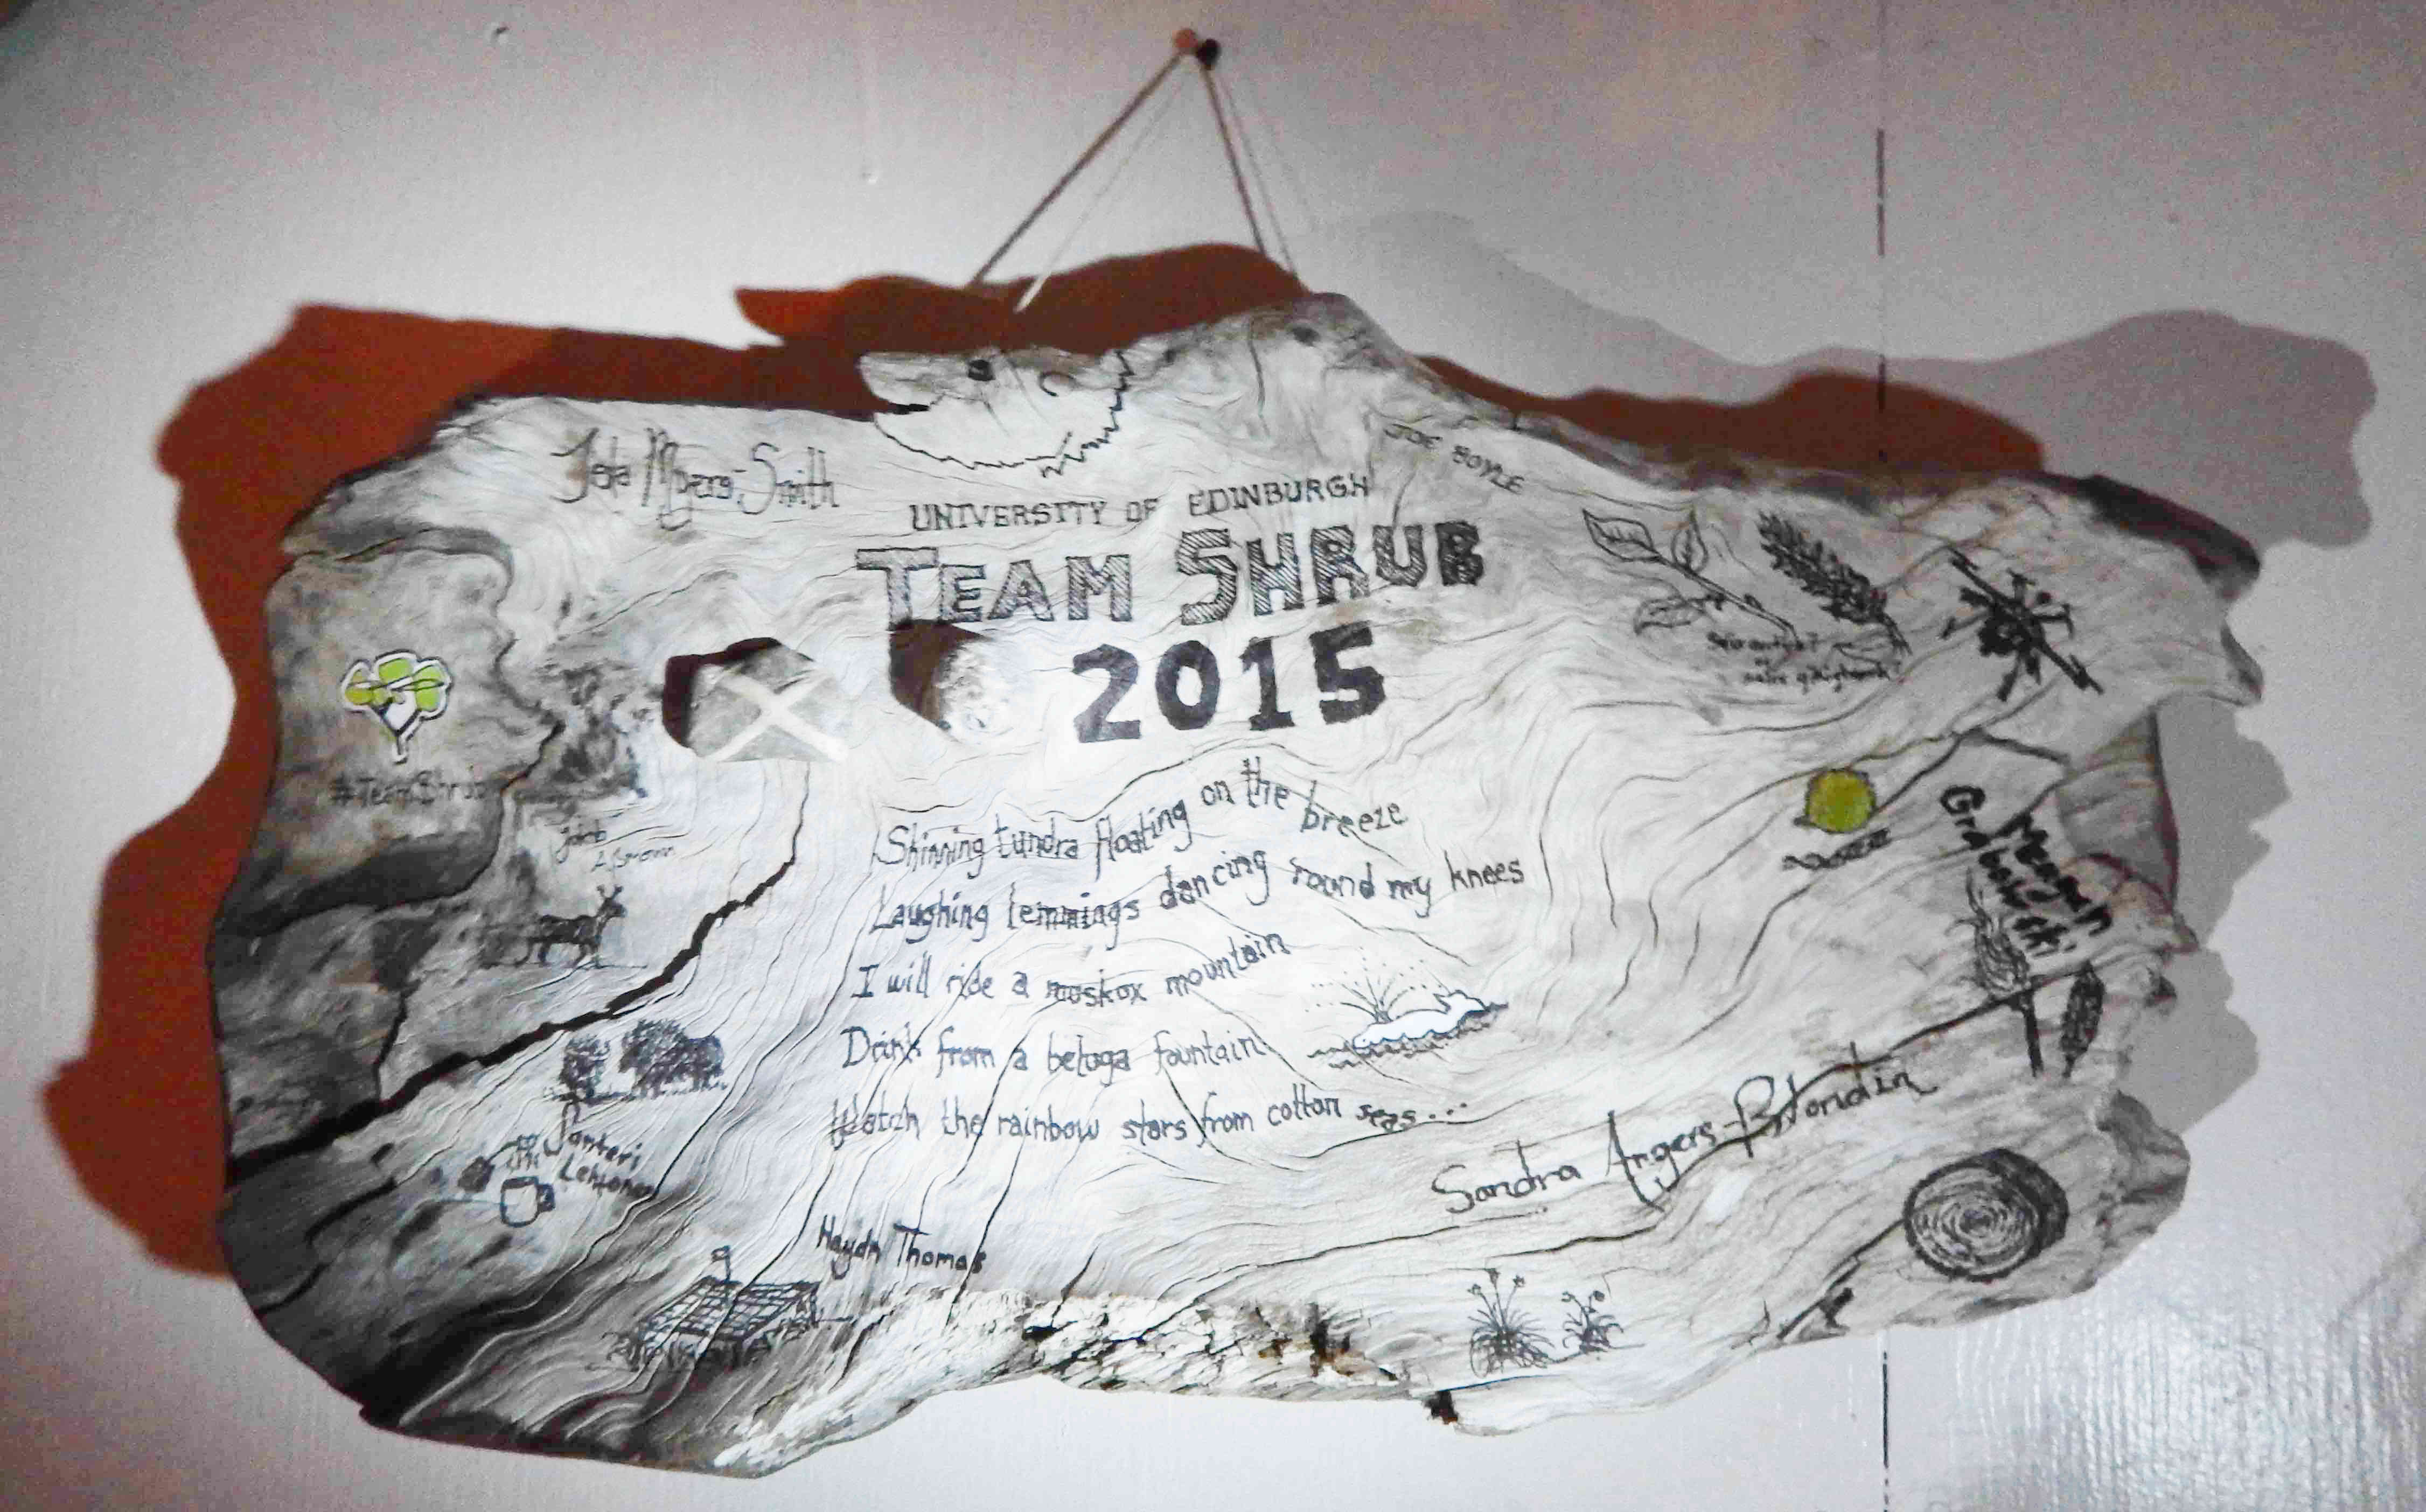 Isla Myers-Smith
JOE BOYLE
UNIVERSITY OF EDINBURGH
TEAM SHRUB
2015
#TeamShrub
Shinning tundra floating on the breeze
Laughing lemmings dancing 'round my knees
I will ride a muskox mountain
Drink from a beluga fountain
Watch the rainbow stars from cotton seas...
Meagan
Grabowski
Sandra Angers-Blondin
Santeri
Lehtonen
Haydn Thomas